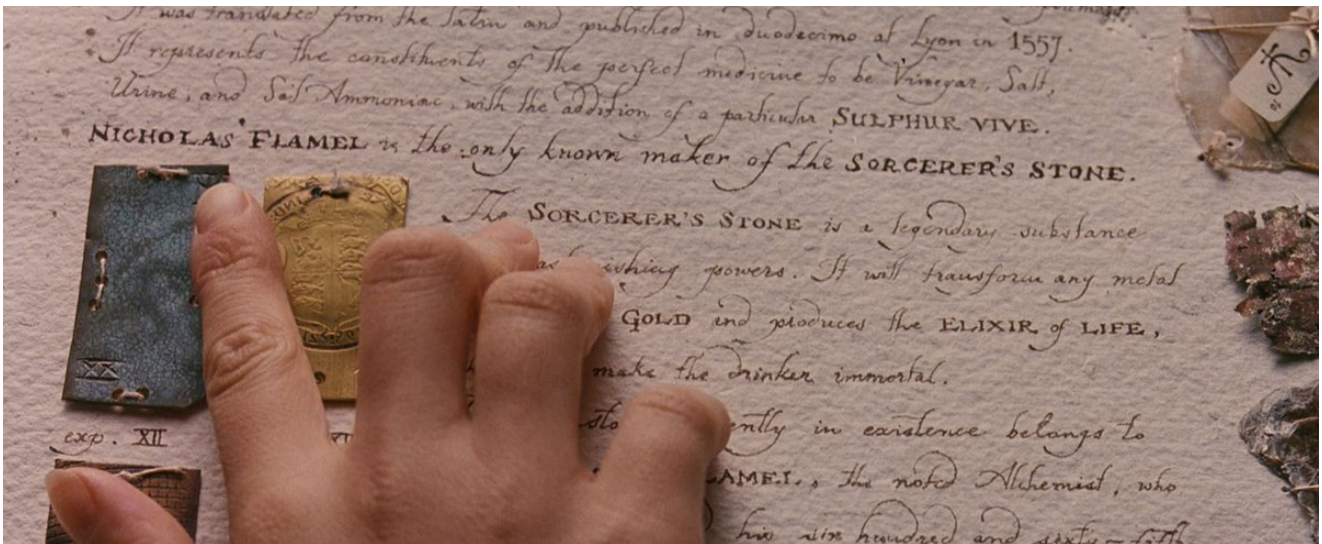 It was translated from the Latin and published in duodecimo at Lyon in 1557.
It represents the constituents of the perfect medicine to be Vinegar, Salt,
Urine, and Sal Ammoniac, with the addition of a particular SULPHUR VIVE.
NICHOLAS FLAMEL is the only known maker of the SORCERER'S STONE.
The SORCERER'S STONE is a legendary substance
ishing powers. It will transform any metal
GOLD and produces the ELIXIR of LIFE,
make the drinker immortal.
XX
sto ently in existence belongs to
exp. XII
AMEL, the noted Alchemist, who
his six hundred and sixty-fifth